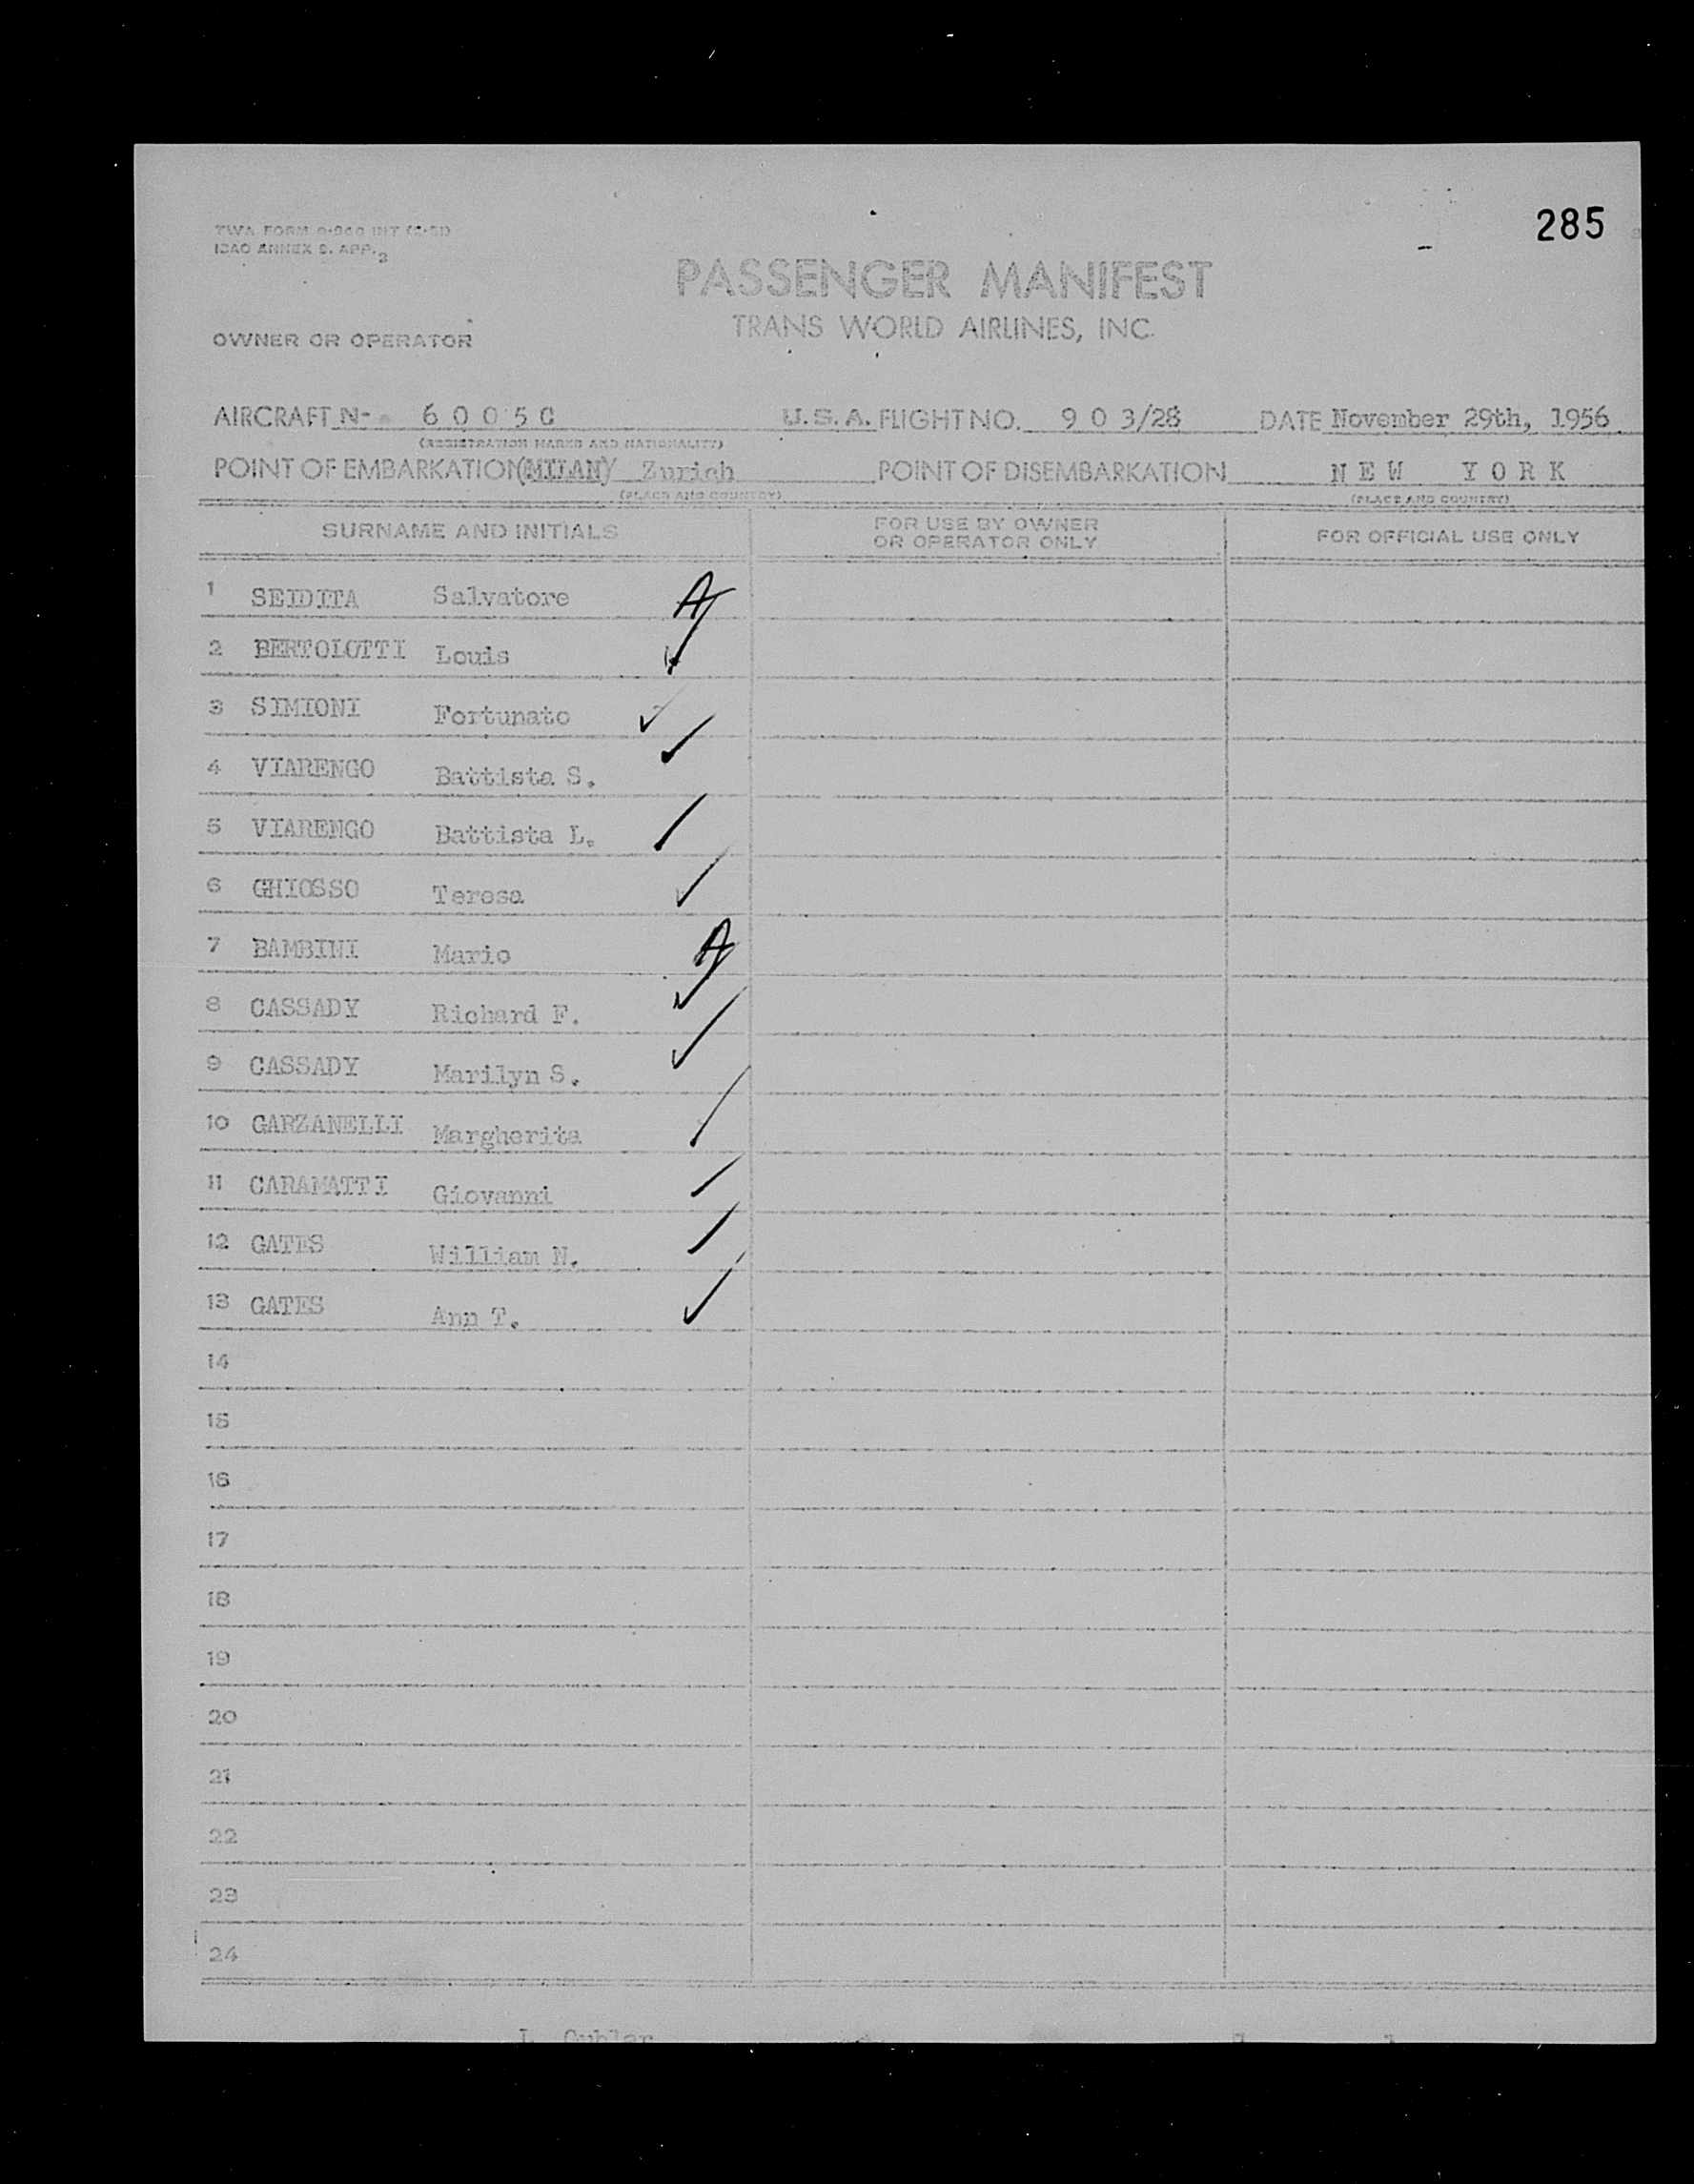 285
TWA FORM 0-940 INT (2-51)
ICAO ANNEX 9. APP. 3
PASSENGER MANIFEST
TRANS WORLD AIRLINES, INC.
OWNER OR OPERATOR
AIRCRAFT N- 6 0 0 5 C U.S.A. FLIGHT NO. 9 0 3/28 DATE November 29th, 1956
(REGISTRATION MARKS AND NATIONALITY)
POINT OF EMBARKATION (MILAN) Zurich POINT OF DISEMBARKATION N E W Y O R K
(PLACE AND COUNTRY) (PLACE AND COUNTRY)
SURNAME AND INITIALS FOR USE BY OWNER OR OPERATOR ONLY FOR OFFICIAL USE ONLY
1 SEIDITA Salvatore A
2 BERTOLOTTI Louis
3 SIMIONI Fortunato
4 VIARENGO Battista S.
5 VIARENGO Battista L.
6 GHIOSSO Teresa
7 BAMBINI Mario A
8 CASSADY Richard F.
9 CASSADY Marilyn S.
10 GARZANELLI Margherita
11 CARAMATTI Giovanni
12 GATES William N.
13 GATES Ann T.
14
15
16
17
18
19
20
21
22
23
24